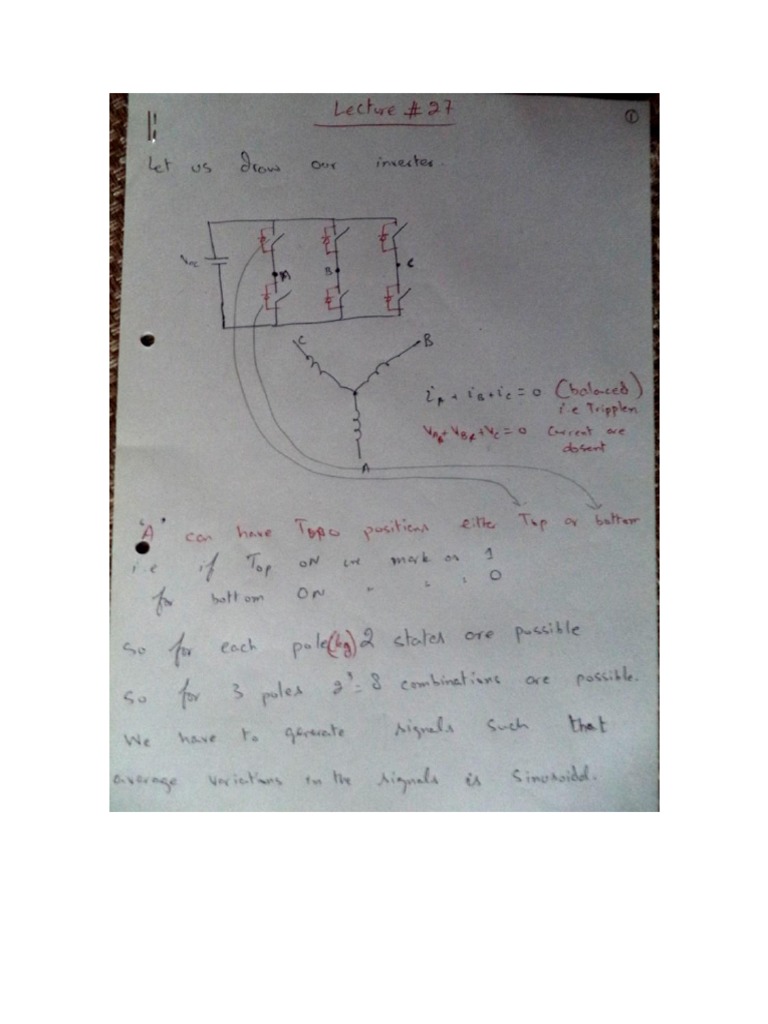 Lecture # 27
1
Let us draw our inverter.
VDC
A
B
C
C
B
A
iA + iB + iC = 0 (balaced)
i.e Tripplen
VA + VB + VC = 0 Current are
absent
"A" can have Two positions either Top or bottom
i.e if Top ON we mark as 1
for bottom ON " " " 0
so for each pole (leg) 2 states are possible
so for 3 poles 2³ = 8 combinations are possible.
We have to generate signals such that
average variations in the signals is Sinusoidal.